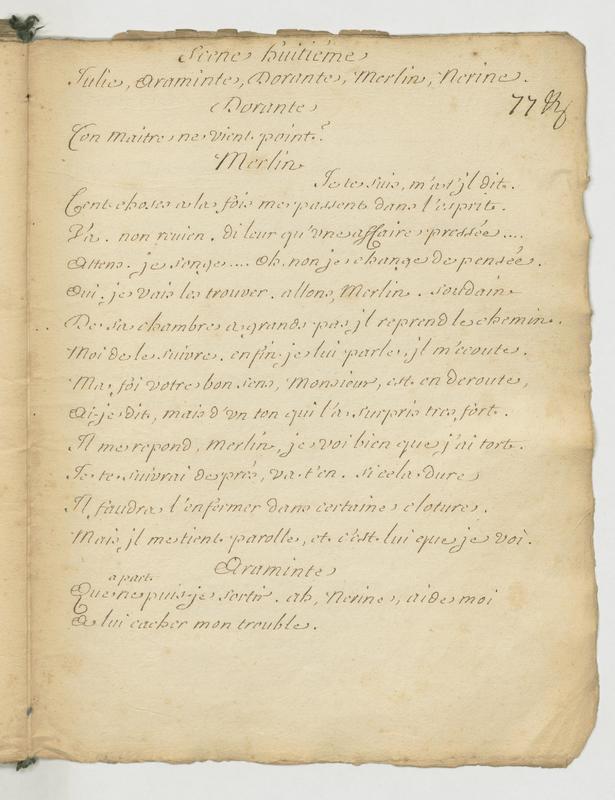 Scene huitiéme
Julie, Araminte, Dorante, Merlin, Nerine.
77
Dorante
Ton maitre ne vient point?
Merlin
Je te suis, m'a t'jl dit.
Cent choses a la fois me passent dans l'esprit.
Va. non revien. di leur qu'vne affaire pressée ....
Attens. je songe .... Oh, non je change de pensée.
Oui, je vais les trouver. allons, Merlin. soudain
De sa chambre a grands pas jl reprend le chemin.
Moi de le suivre. enfin je lui parle, jl m'ecoute.
Ma foi votre bon sens, Monsieur, est en deroute,
Ai-je dit, mais d'vn ton qui l'a surpris tres fort.
Jl me repond, Merlin, je voi bien que j'ai tort.
Je te suivrai de prés, va t'en. si cela dure
Jl faudra l'enfermer dans certaine cloture.
Mais jl me tient parolle, et c'est lui que je voi.
Araminte
a part.
Que ne puis-je sortir. ah, Nerine, aide moi
A lui cacher mon trouble.